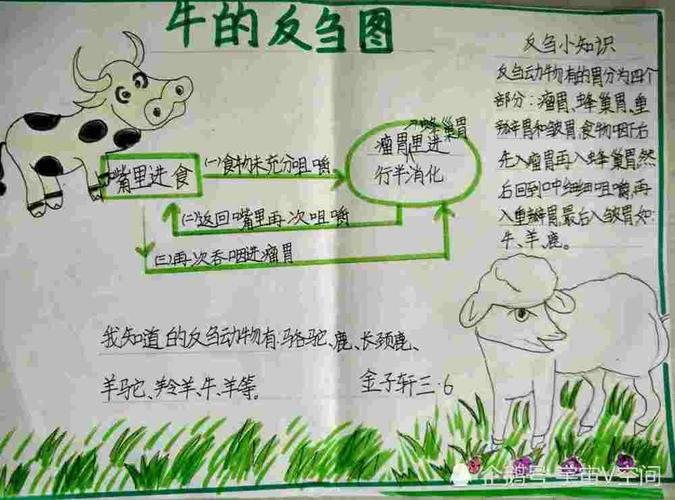 牛的反刍图
反刍小知识
反刍动物有的胃分为四个
部分：瘤胃、蜂巢胃、重
瓣胃和皱胃。食物咽下后
先入瘤胃再入蜂巢胃然
后回到口中细细咀嚼，再
入重瓣胃。最后入皱胃如：
牛、羊、鹿。
嘴里进食
(一)食物未充分咀嚼
蜂巢胃
瘤胃里进
行半消化
(二)返回嘴里再次咀嚼
(三)再次吞咽进瘤胃
我知道的反刍动物有：骆驼、鹿、长颈鹿、
羊驼、羚羊、牛、羊等。
金子轩三·6
企鹅号 宇宙V空间